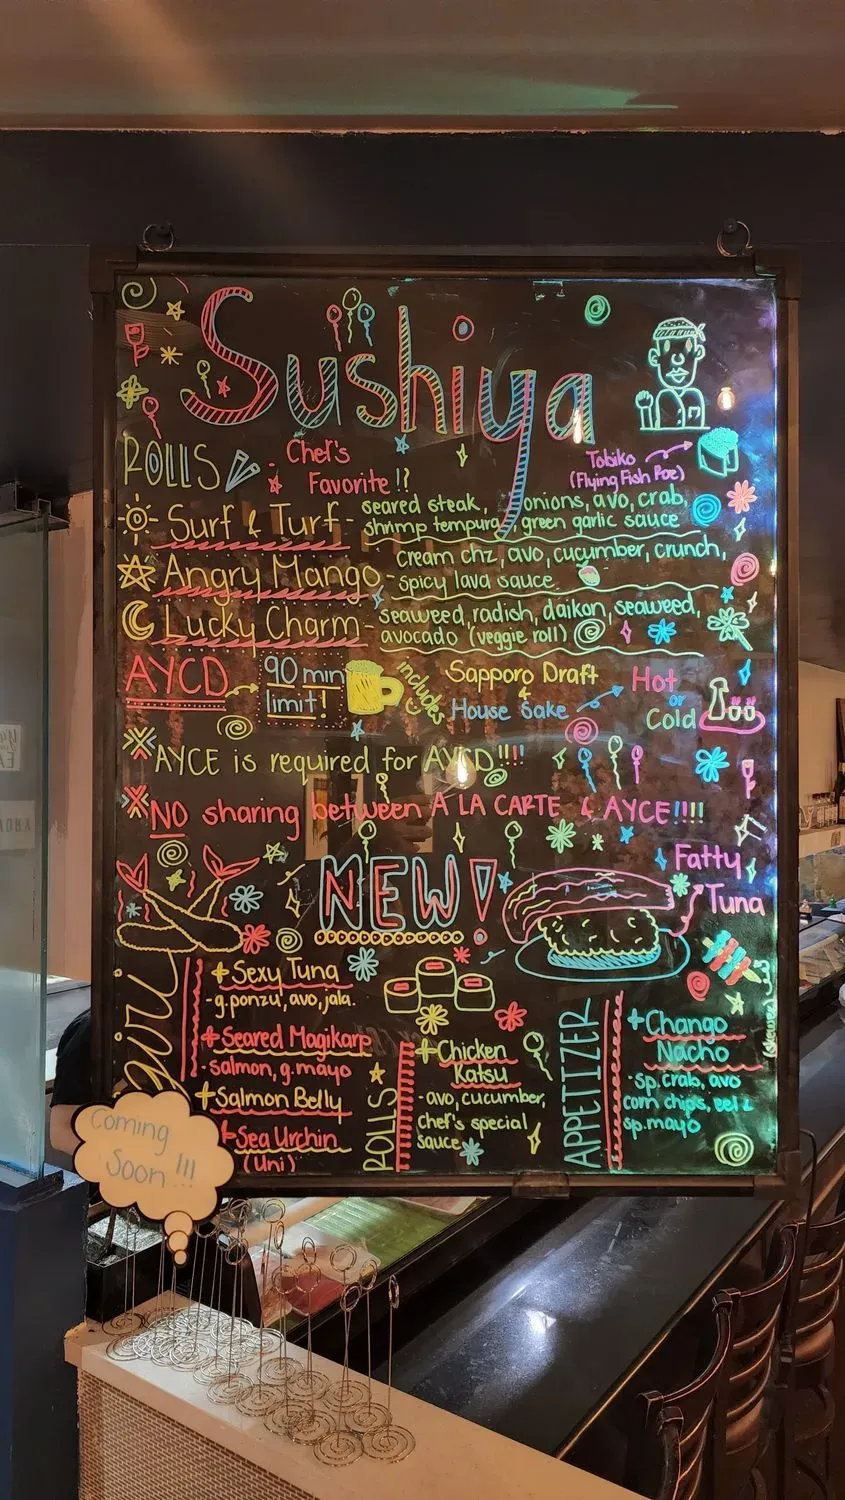 Sushiya
ROLLS
Chef's
Favorite!?
Tobiko
(Flying Fish Roe)
Surf & Turf - seared steak, onions, avo, crab,
shrimp tempura, green garlic sauce
Angry Mango - cream chz, avo, cucumber, crunch,
spicy lava sauce
Lucky Charm - seaweed, radish, daikon, seaweed,
avocado (veggie roll)
AYCD
90 min
limit!
includes
Sapporo Draft
&
House Sake
Hot
or
Cold
AYCE is required for AYCD!!!!
NO sharing between A LA CARTE & AYCE!!!!
NEW!
Fatty
Tuna
+Sexy Tuna
-g.ponzu, avo, jala.
+Seared Magikarp
-salmon, g.mayo
+Salmon Belly
+Sea Urchin
(Uni)
ROLLS
+Chicken
Katsu
-avo, cucumber,
chef's special
sauce
APPETIZER
+Chango
Nacho
-sp. crab, avo
corn chips, eel &
sp. mayo
Coming
Soon !!!